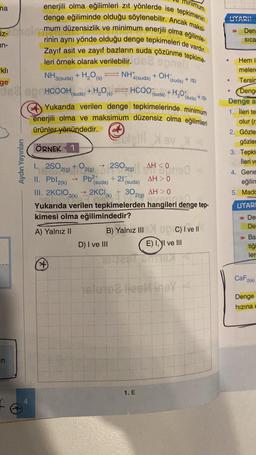 enerjili olma eğilimleri zıt yönlerde ise tepkimenin
denge eğiliminde olduğu söylenebilir. Ancak maksi-
mum düzensizlik ve minimum enerjili olma eğilimle-
rinin aynı yönde olduğu denge tepkimeleri de vardır.
Zayıf asit ve zayıf bazların suda çözünme tepkime-
leri örnek olarak verilebilir.
NH3(suda) + H2O(s) ⇌ NH4+(suda) + OH-(suda) + ısı
HCOOH(suda) + H2O(s) ⇌ HCOO-(suda) + H3O+(suda) + ısı
Yukarıda verilen denge tepkimelerinde minimum
enerjili olma ve maksimum düzensiz olma eğilimleri
ürünler yönündedir.
Aydın Yayınları
ÖRNEK 1
I. 2SO2(g) + O2(g) → 2SO3(g) ΔH < 0
II. PbI2(k) → Pb2+(suda) + 2I-(suda) ΔH > 0
III. 2KClO3(k) → 2KCl(k) + 3O2(g) ΔH > 0
Yukarıda verilen tepkimelerden hangileri denge tep-
kimesi olma eğilimindedir?
A) Yalnız II B) Yalnız III C) I ve II
D) I ve III E) I, II ve III
1. E
4
UYARI!
Den
sıca
Hem i
melen
Tersin
Deng
Denge a
1. İleri te
olur (r
2. Gözle
gözler
3. Tepki
ileri ve
4. Gene
eğilim
5. Madd
UYARI
De
De
Ba
tiği
ler
CaF2(k)
Denge
hızına e